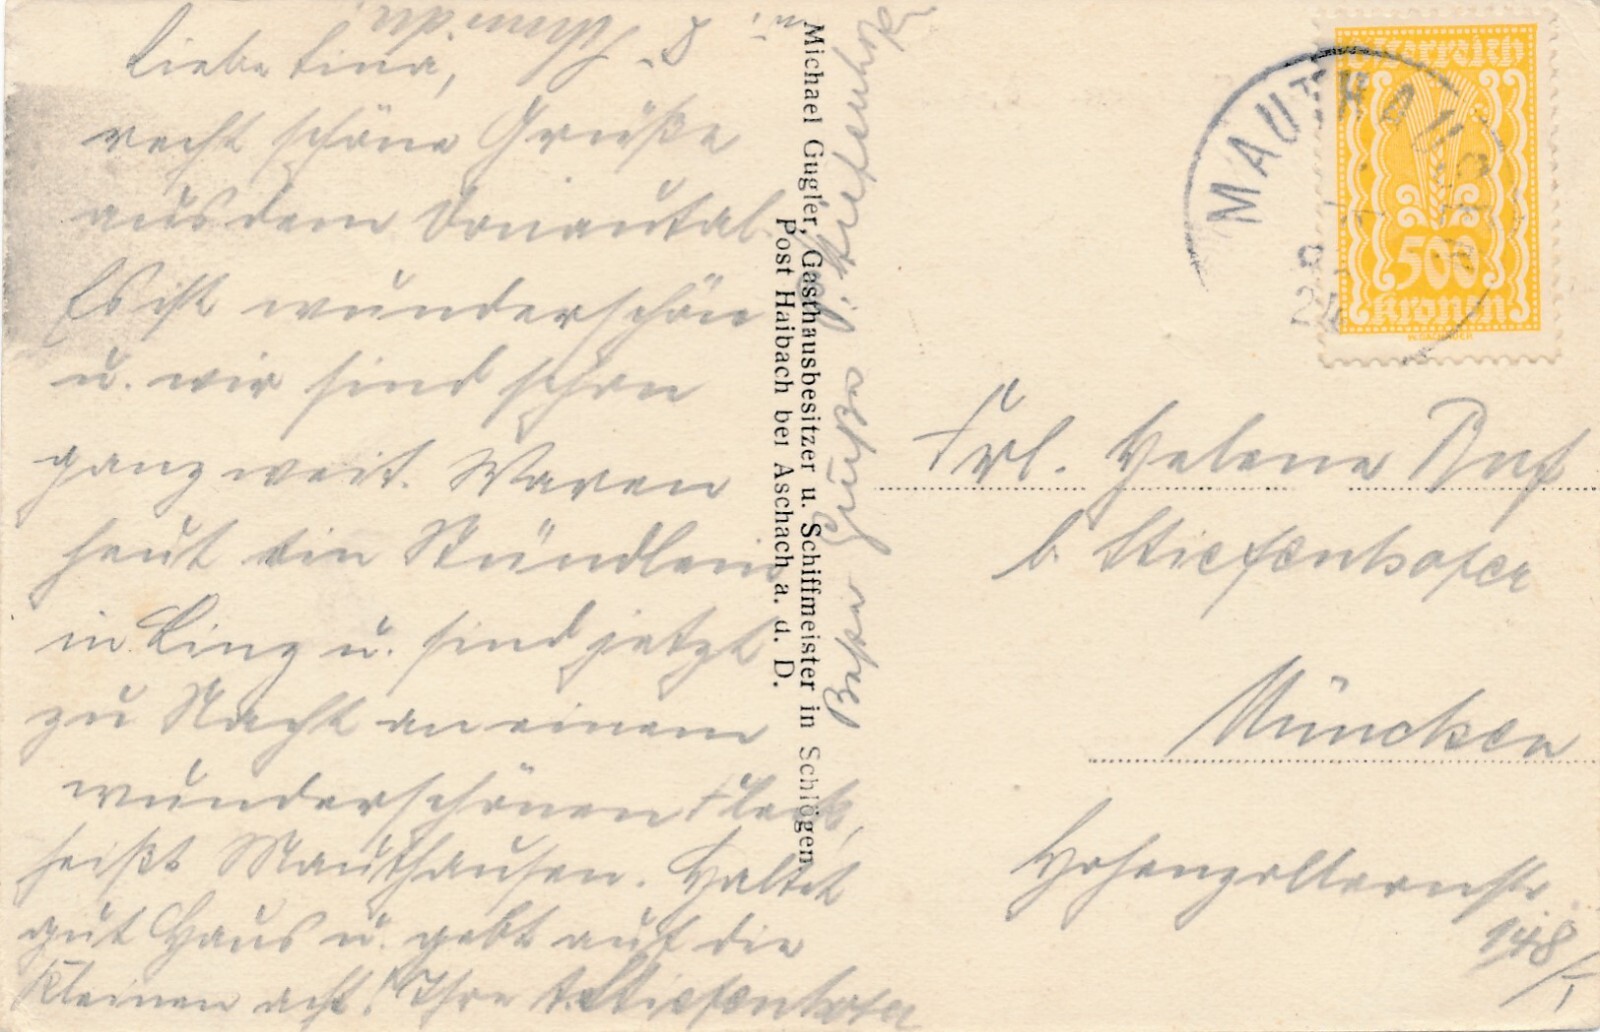 Liebe Lina,
recht schöne Grüße
aus dem Donautal.
Es ist wunderschön
u. wir sind schon
ganz weit. Waren
heut ein Stündlein
in Linz u. sind jetzt
zu Nacht an einem
wunderschönen Fleck,
heißt Mauthausen. Haltet
gut Haus u. gebt auf die
Kleinen acht! Ihre A. Stiefenhofer
Michael Gugler, Gasthausbesitzer u. Schiffmeister in Schlögen
Post Haibach bei Aschach a. d. D.
Grüße J. Stiefenhofer
Österreich
500
Kronen
MAUTHAUSEN
24
Frl. Helena
b. Stiefenhofer
München
Hohenzollernstr.
148/I